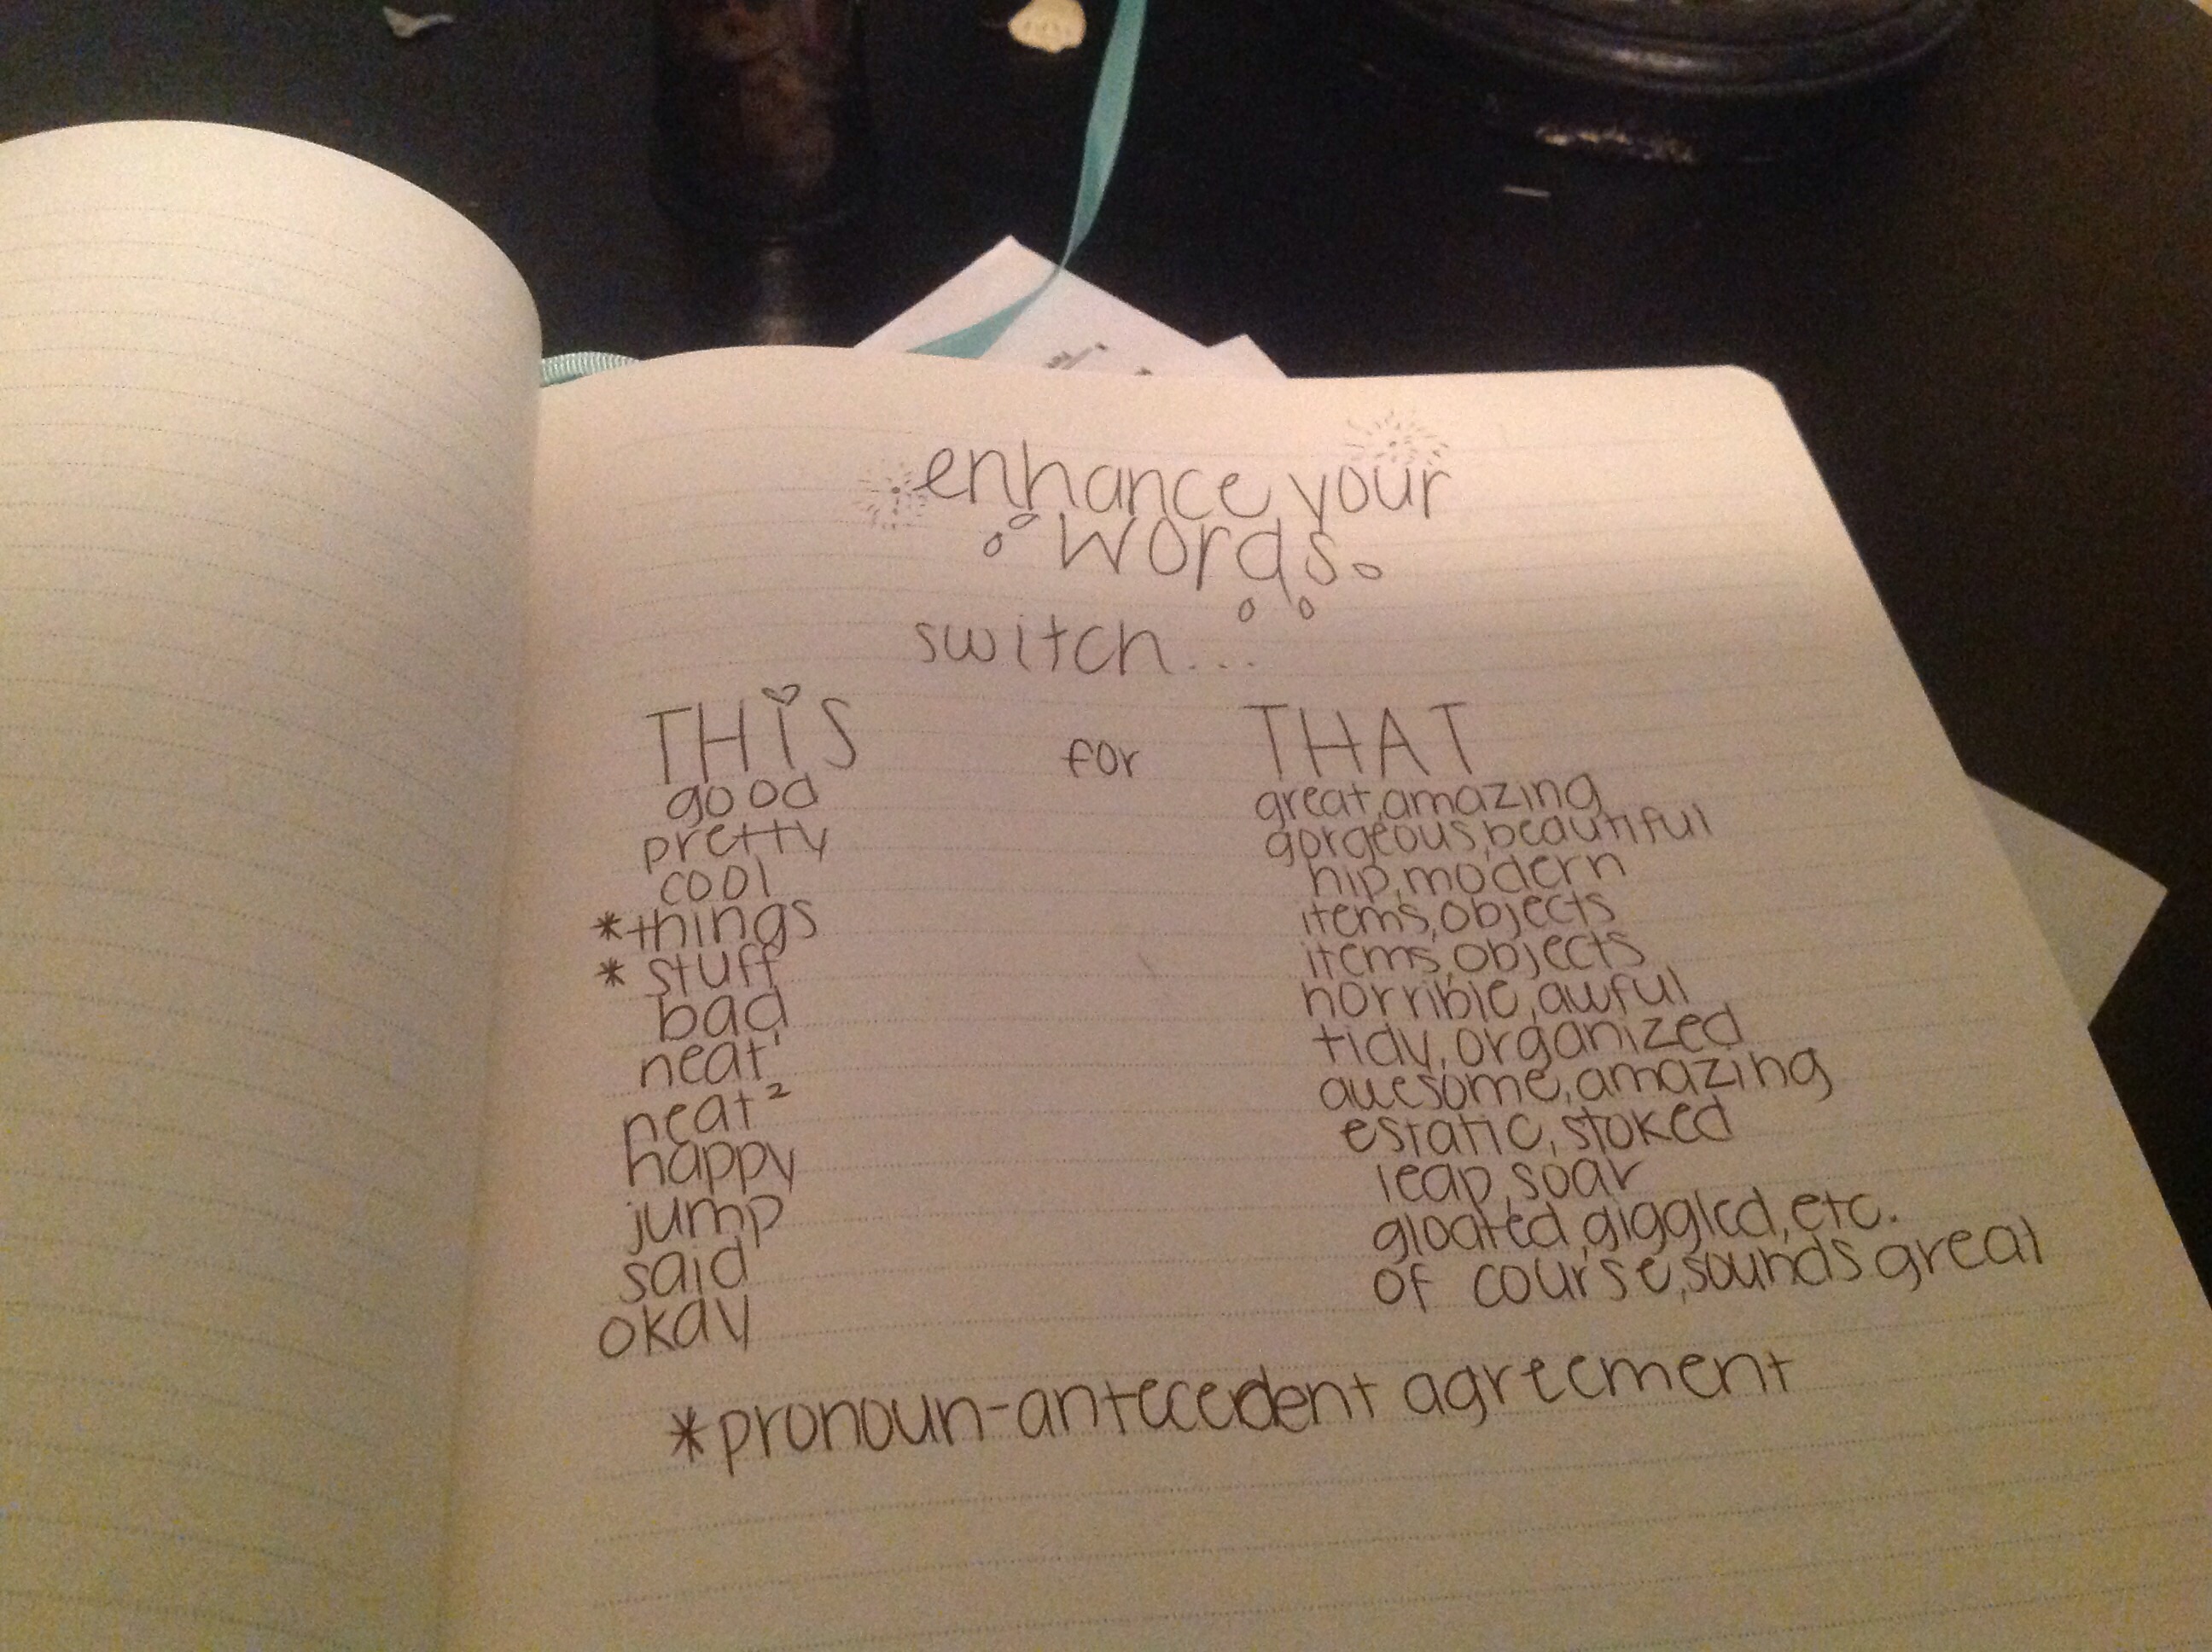 enhance your
words
switch...
THiS for THAT
good great, amazing
pretty gorgeous, beautiful
cool hip, modern
*things items, objects
* stuff items, objects
bad horrible, awful
neat¹ tidy, organized
neat² awesome, amazing
happy estatic, stoked
jump leap, soar
said gloated, giggled, etc.
okay of course, sounds great
*pronoun-antecedent agreement